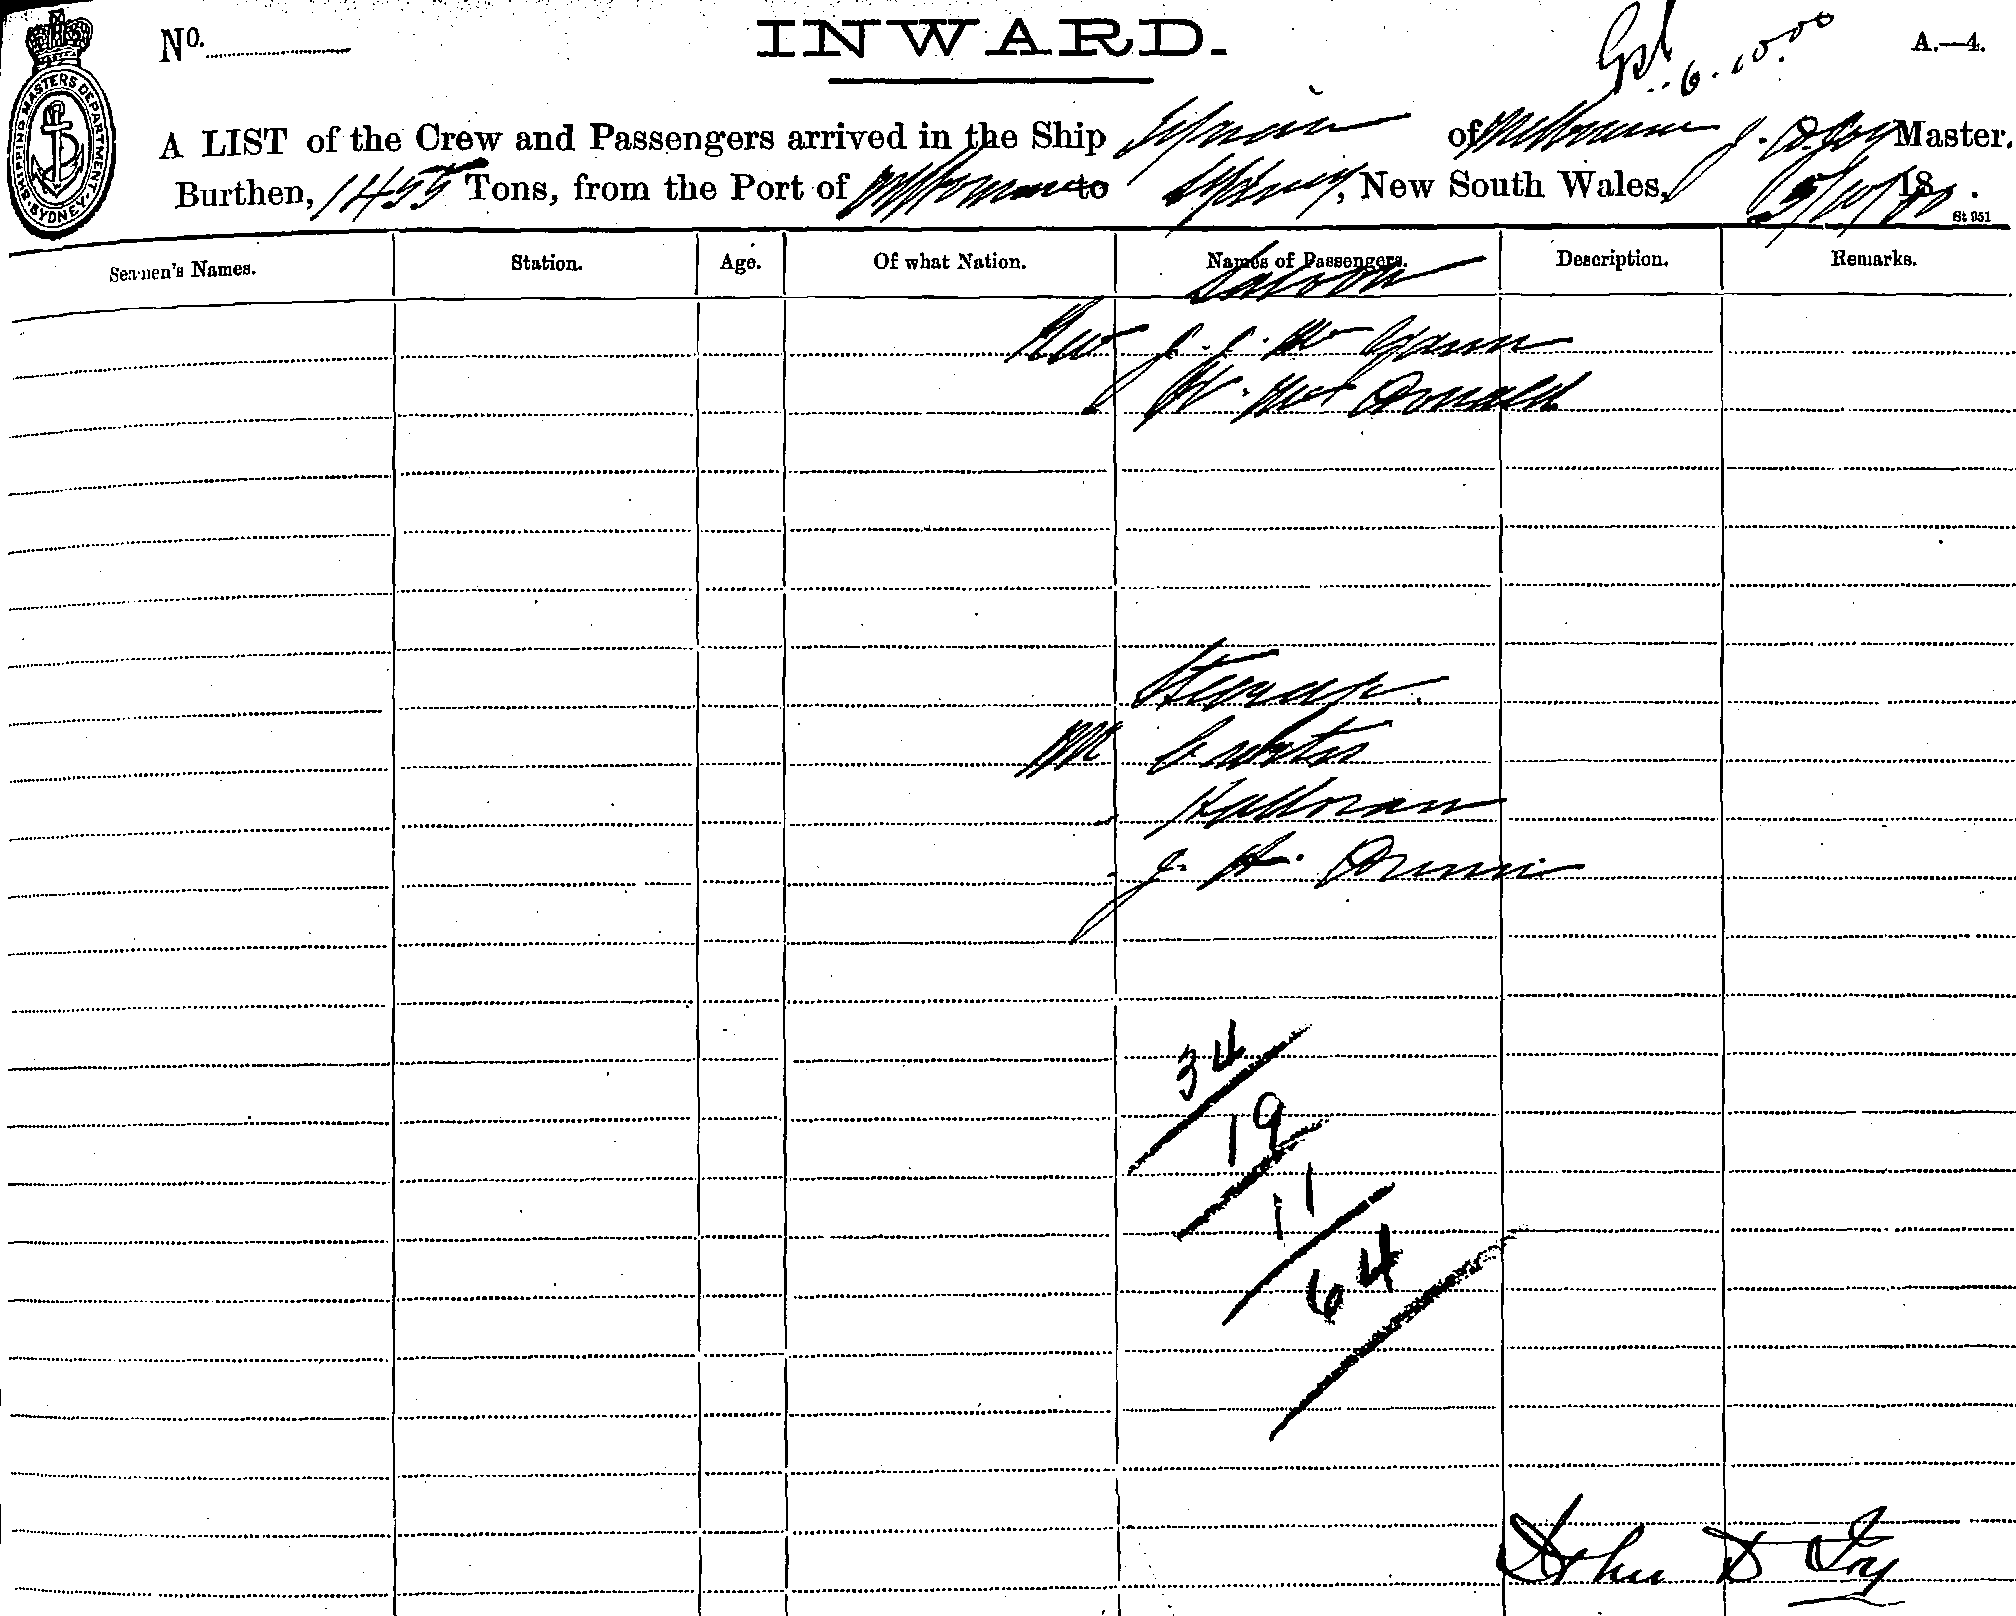 No.
INWARD.
6.10.00
A.—4.
SHIPPING MASTERS DEPARTMENT
SYDNEY
A LIST of the Crew and Passengers arrived in the Ship of Melbourne J. D. Joy Master.
Burthen, 1455 Tons, from the Port of Melbourne to Sydney, New South Wales, 5/10/00 18
St 951
Seamen's Names. Station. Age. Of what Nation. Names of Passengers. Description. Remarks.
Saloon
J. J. Mc Gann
Mc Donald
Steerage.
Mr Curtis
Halloran
J. H.
34
19
11
64
John D Joy